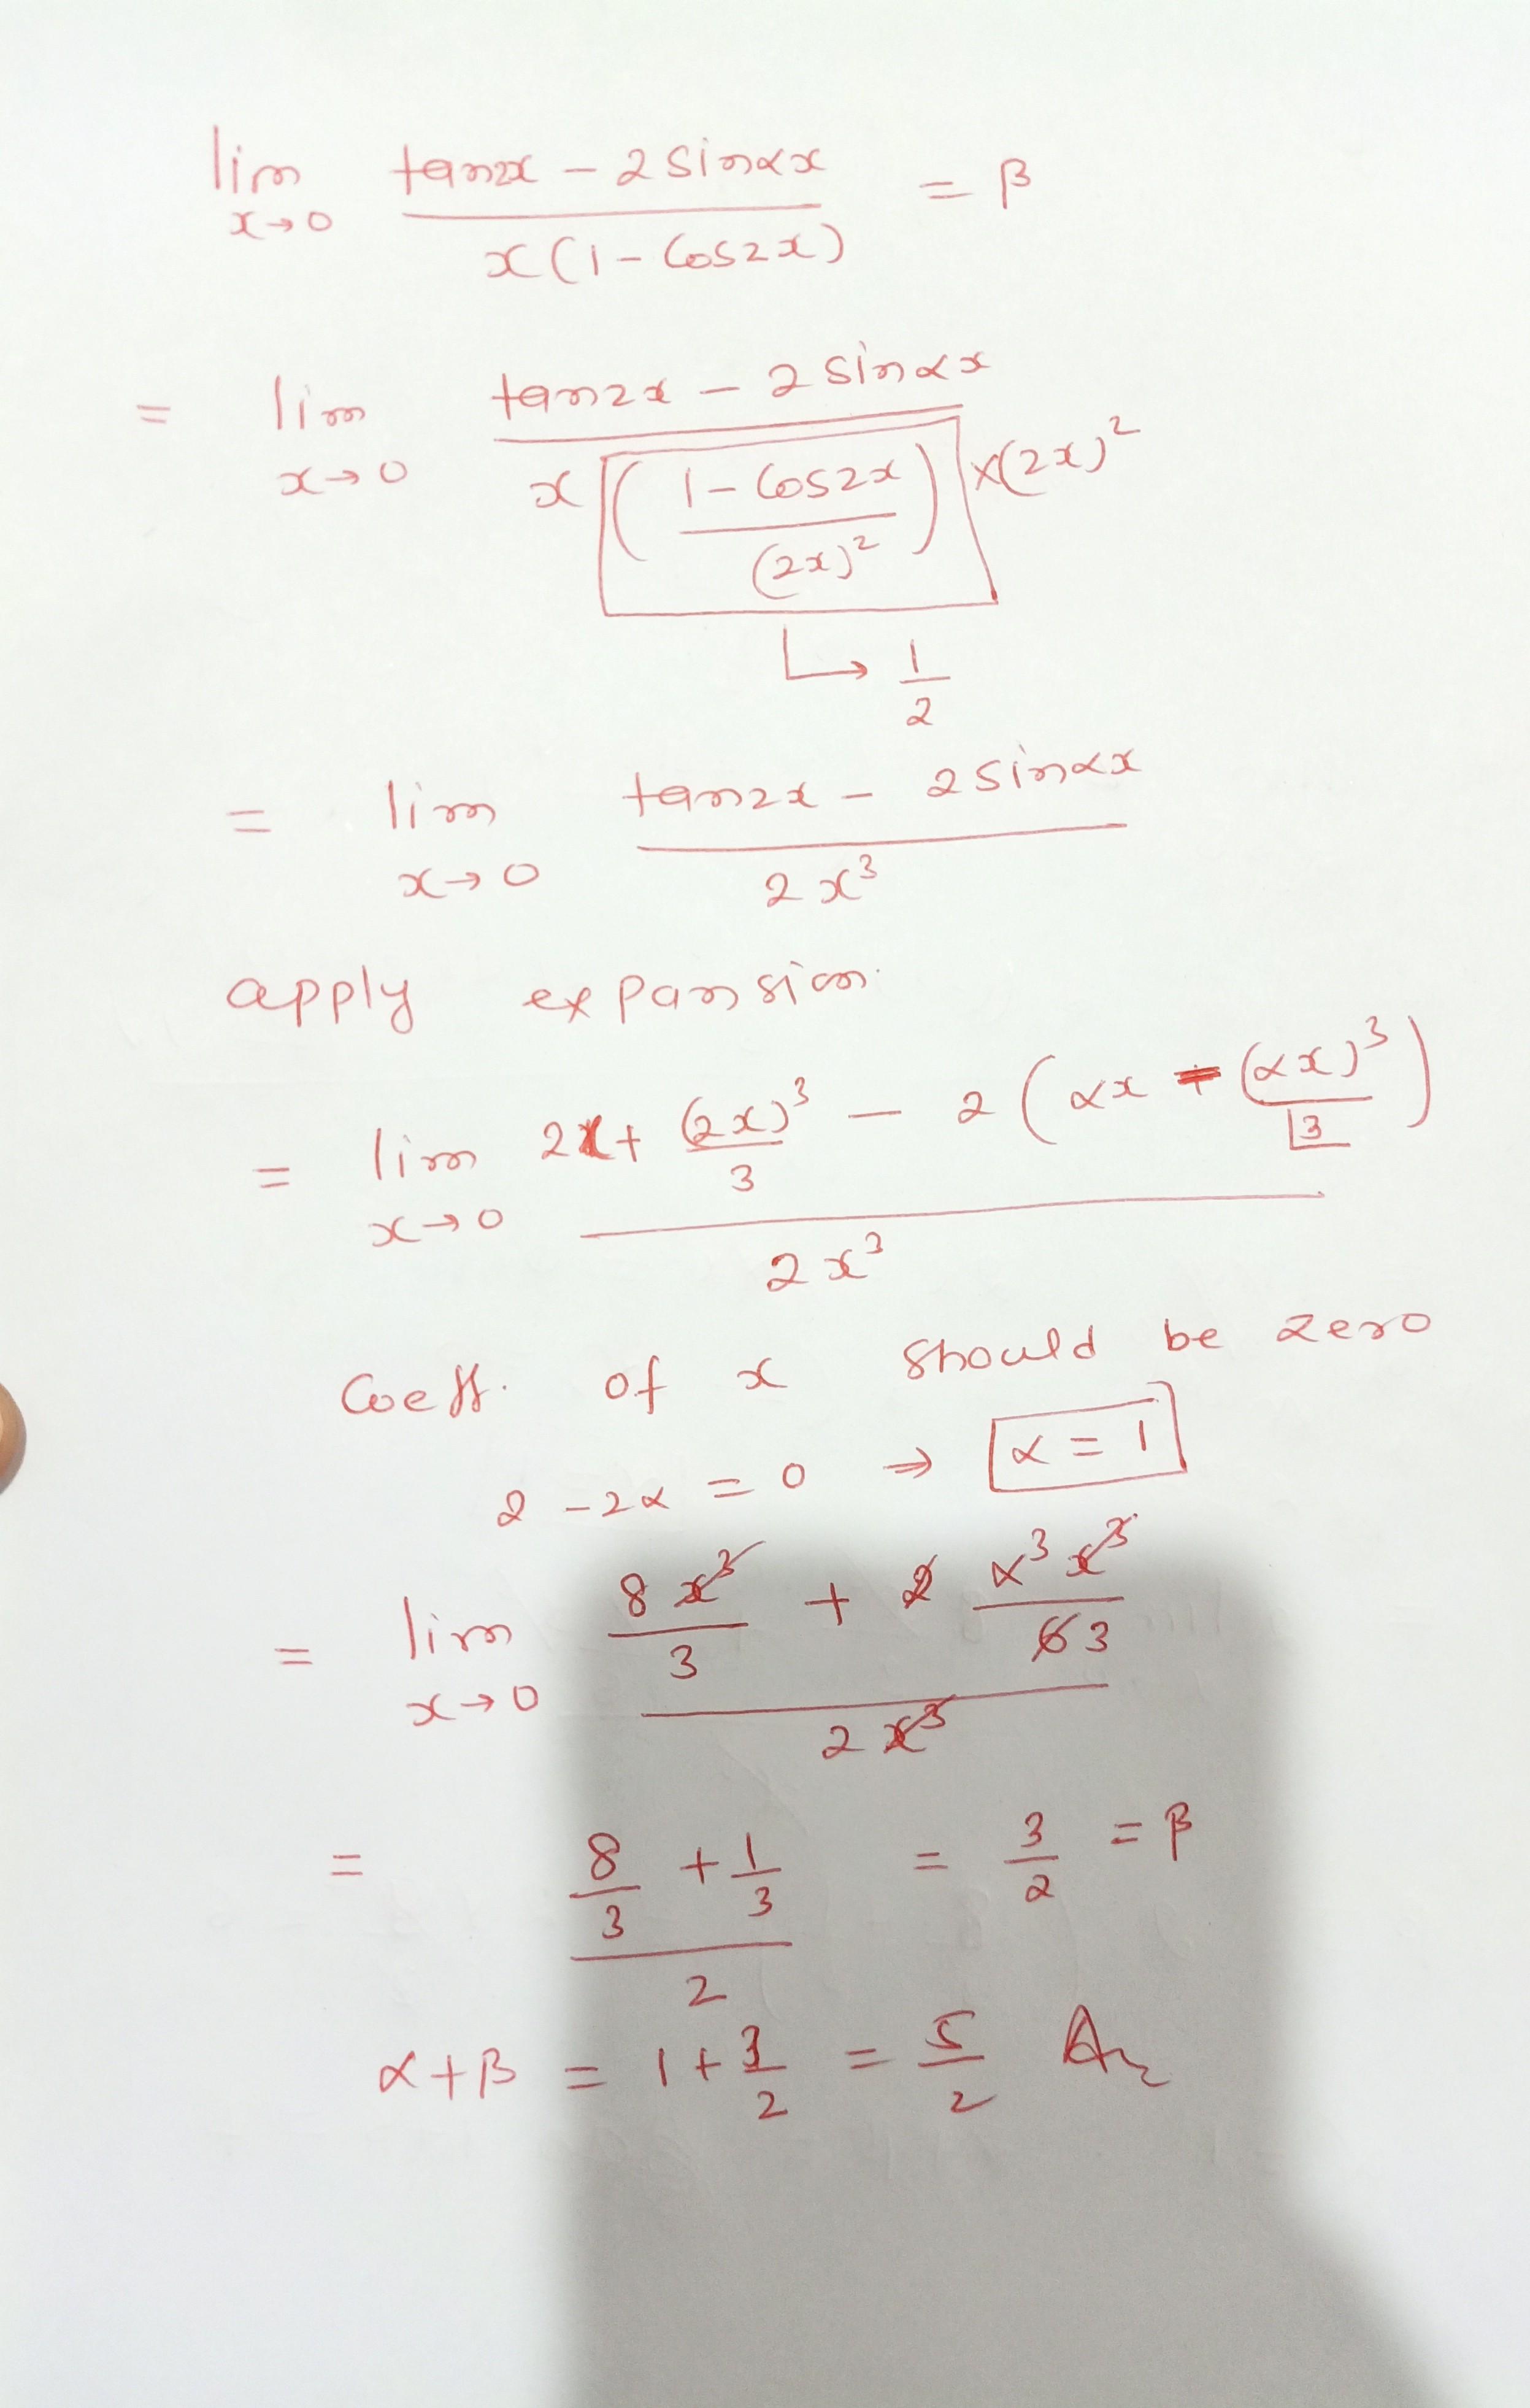 lim x→0 (tan2x − 2 sinαx) / (x(1 − Cos2x)) = β
= lim x→0 (tan2x − 2 sinαx) / (x ((1 − Cos2x) / (2x)²) × (2x)²)
↳ 1/2
= lim x→0 (tan2x − 2 sinαx) / (2x³)
apply expansion.
= lim x→0 (2x + (2x)³/3 − 2(αx − (αx)³/⌊3)) / (2x³)
Coeff. of x should be zero
2 − 2α = 0 ⇒ α = 1
= lim x→0 (8x³/3 + 2 α³x³/6 3) / (2x³)
= (8/3 + 1/3) / 2 = 3/2 = β
α + β = 1 + 3/2 = 5/2 Ans